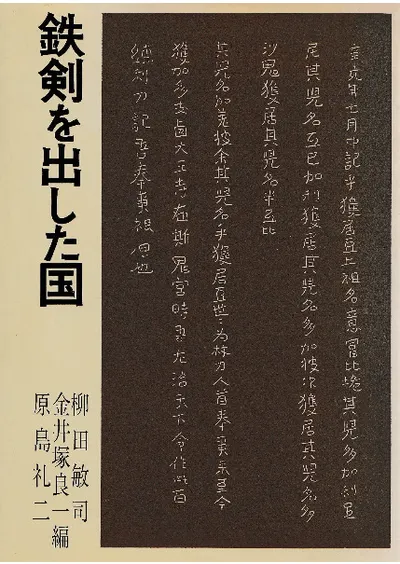 辛亥年七月中記乎獲居臣上祖名意冨比垝其児多加利足
尼其児名弖已加利獲居其児名多加披次獲居其児名多
沙鬼獲居其児名半弖比
其児名加差披余其児名乎獲居臣世々為杖刀人首奉事来至今
獲加多支鹵大王寺在斯鬼宮時吾左治天下令作此百
練利刀記吾奉事根原也
鉄剣を出した国
柳田敏司
金井塚良一編
原島礼二